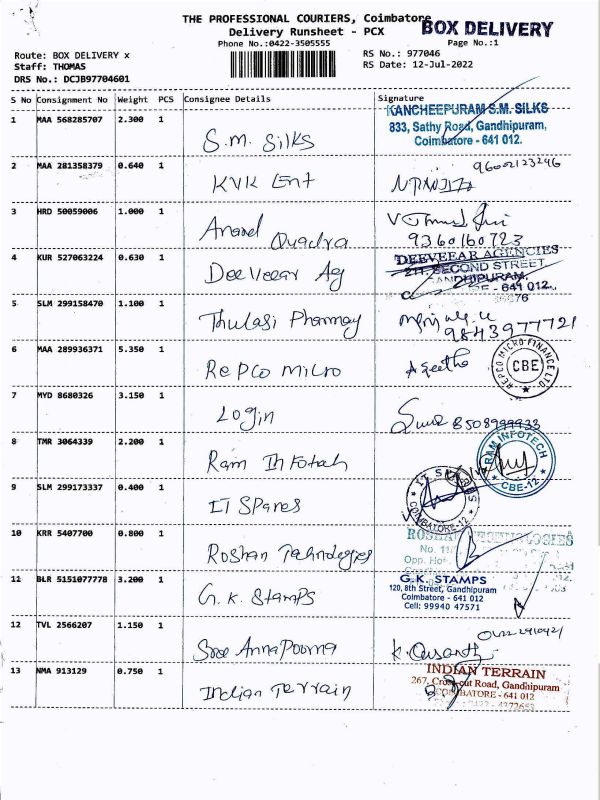 THE PROFESSIONAL COURIERS, Coimbatore
BOX DELIVERY
Delivery Runsheet - PCX
Phone No.:0422-3505555
Page No.:1
Route: BOX DELIVERY x
RS No.: 977046
Staff: THOMAS
RS Date: 12-Jul-2022
DRS No.: DCJB97704601
S No Consignment No Weight PCS Consignee Details Signature
1 MAA 568285707 2.300 1
S.M. Silks
KANCHEEPURAM S.M. SILKS
833, Sathy Road, Gandhipuram,
Coimbatore - 641 012.
2 MAA 281358379 0.640 1
KVK Ent
96002123246
3 HRD 50059006 1.000 1
Anand Quadra
9360160723
4 KUR 527063224 0.630 1
DeeVeear Ag
DEEVEEAR AGENCIES
211, SECOND STREET
GANDHIPURAM,
- 641 012.
5 SLM 299158470 1.100 1
Thulasi Pharmay
9843977721
6 MAA 289936371 5.350 1
Repco Micro
Ageetha
REPCO MICRO FINANCE LTD
CBE
7 MYD 8680326 3.150 1
Login
8508999933
8 TMR 3064339 2.200 1
Ram Infotah
RAM INFOTECH
CBE-12
9 SLM 299173337 0.400 1
IT Spares
IT SPARES
COIMBATORE-12
10 KRR 5407700 0.800 1
Roshan Tahnologies
ROSHAN TECHNOLOGIES
11 BLR 5151077778 3.200 1
G.K. Stamps
G.K. STAMPS
120, 8th Street, Gandhipuram
Coimbatore - 641 012
Cell: 99940 47571
12 TVL 2566207 1.150 1
Sree AnnaPoorna
13 NMA 913129 0.750 1
Indian Terrain
INDIAN TERRAIN
267, Cross-cut Road, Gandhipuram
COIMBATORE - 641 012